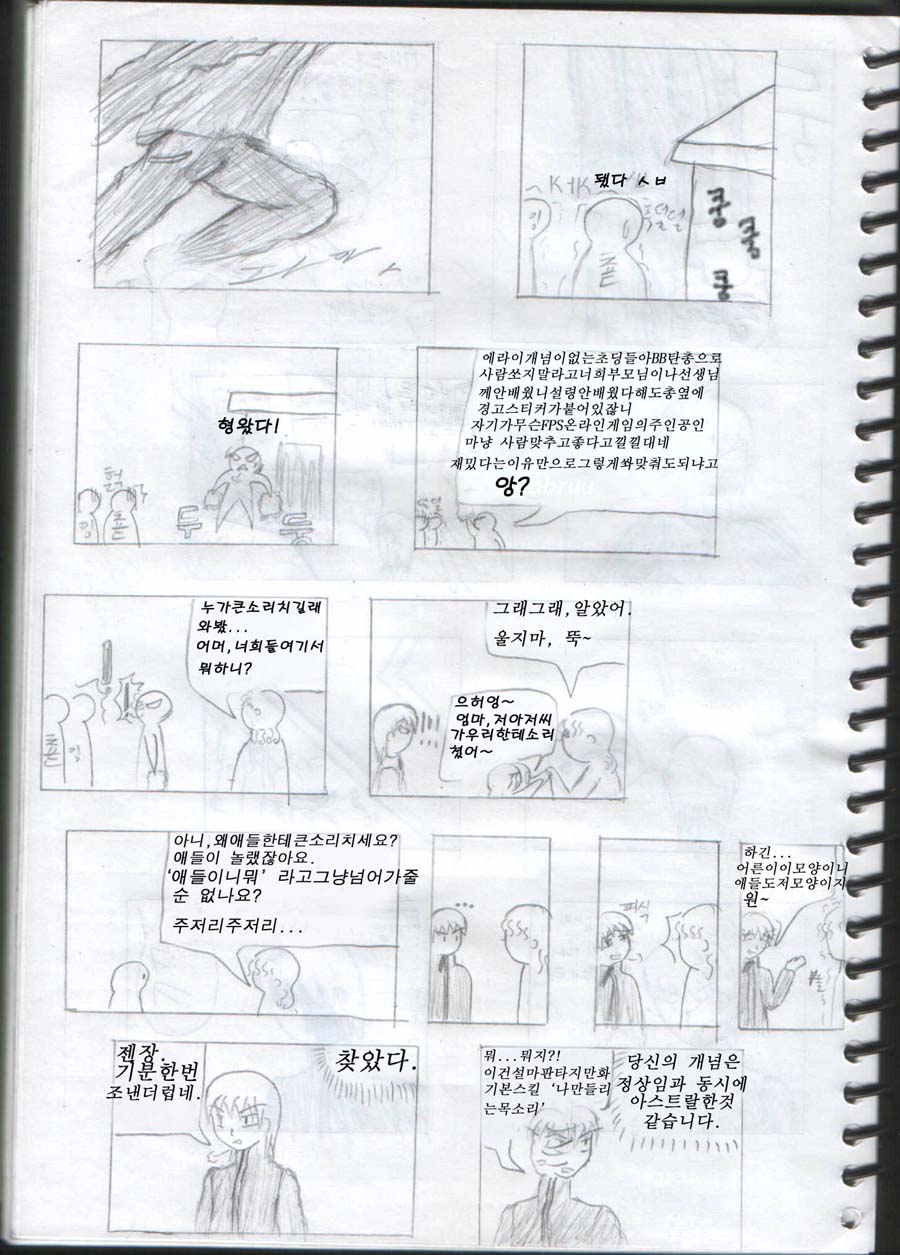 됐다 ㅅㅂ
잉
푠
후덜덜
쿵
쿵
쿵
형왔다!
헐
잉
푠
두
둥
에라이개념이없는초딩들아BB탄총으로
사람쏘지말라고너희부모님이나선생님
께안배웠니설령안배웠다해도총옆에
경고스티커가붙어있잖니
자기가무슨FPS온라인게임의주인공인
마냥 사람맞추고좋다고낄낄대네
재밌다는이유만으로그렇게쏴맞춰도되냐고
앙?
누가큰소리치길래
와봤...
어머,너희들여기서
뭐하니?
푠
잉
그래그래,알았어.
울지마, 뚝~
으허엉~
엄마,저아저씨
가우리한테소리
쳤어~
!!!
아니,왜애들한테큰소리치세요?
애들이 놀랬잖아요.
'애들이니뭐' 라고그냥넘어가줄
순 없나요?
주저리주저리...
...
피식
하긴...
어른이이모양이니
애들도저모양이지
원~
부들
젠장.
기분한번
조낸더럽네.
찾았다.
뭐...뭐지?!
이건설마판타지만화
기본스킬 '나만들리
는목소리'
당신의 개념은
정상임과 동시에
아스트랄한것
같습니다.